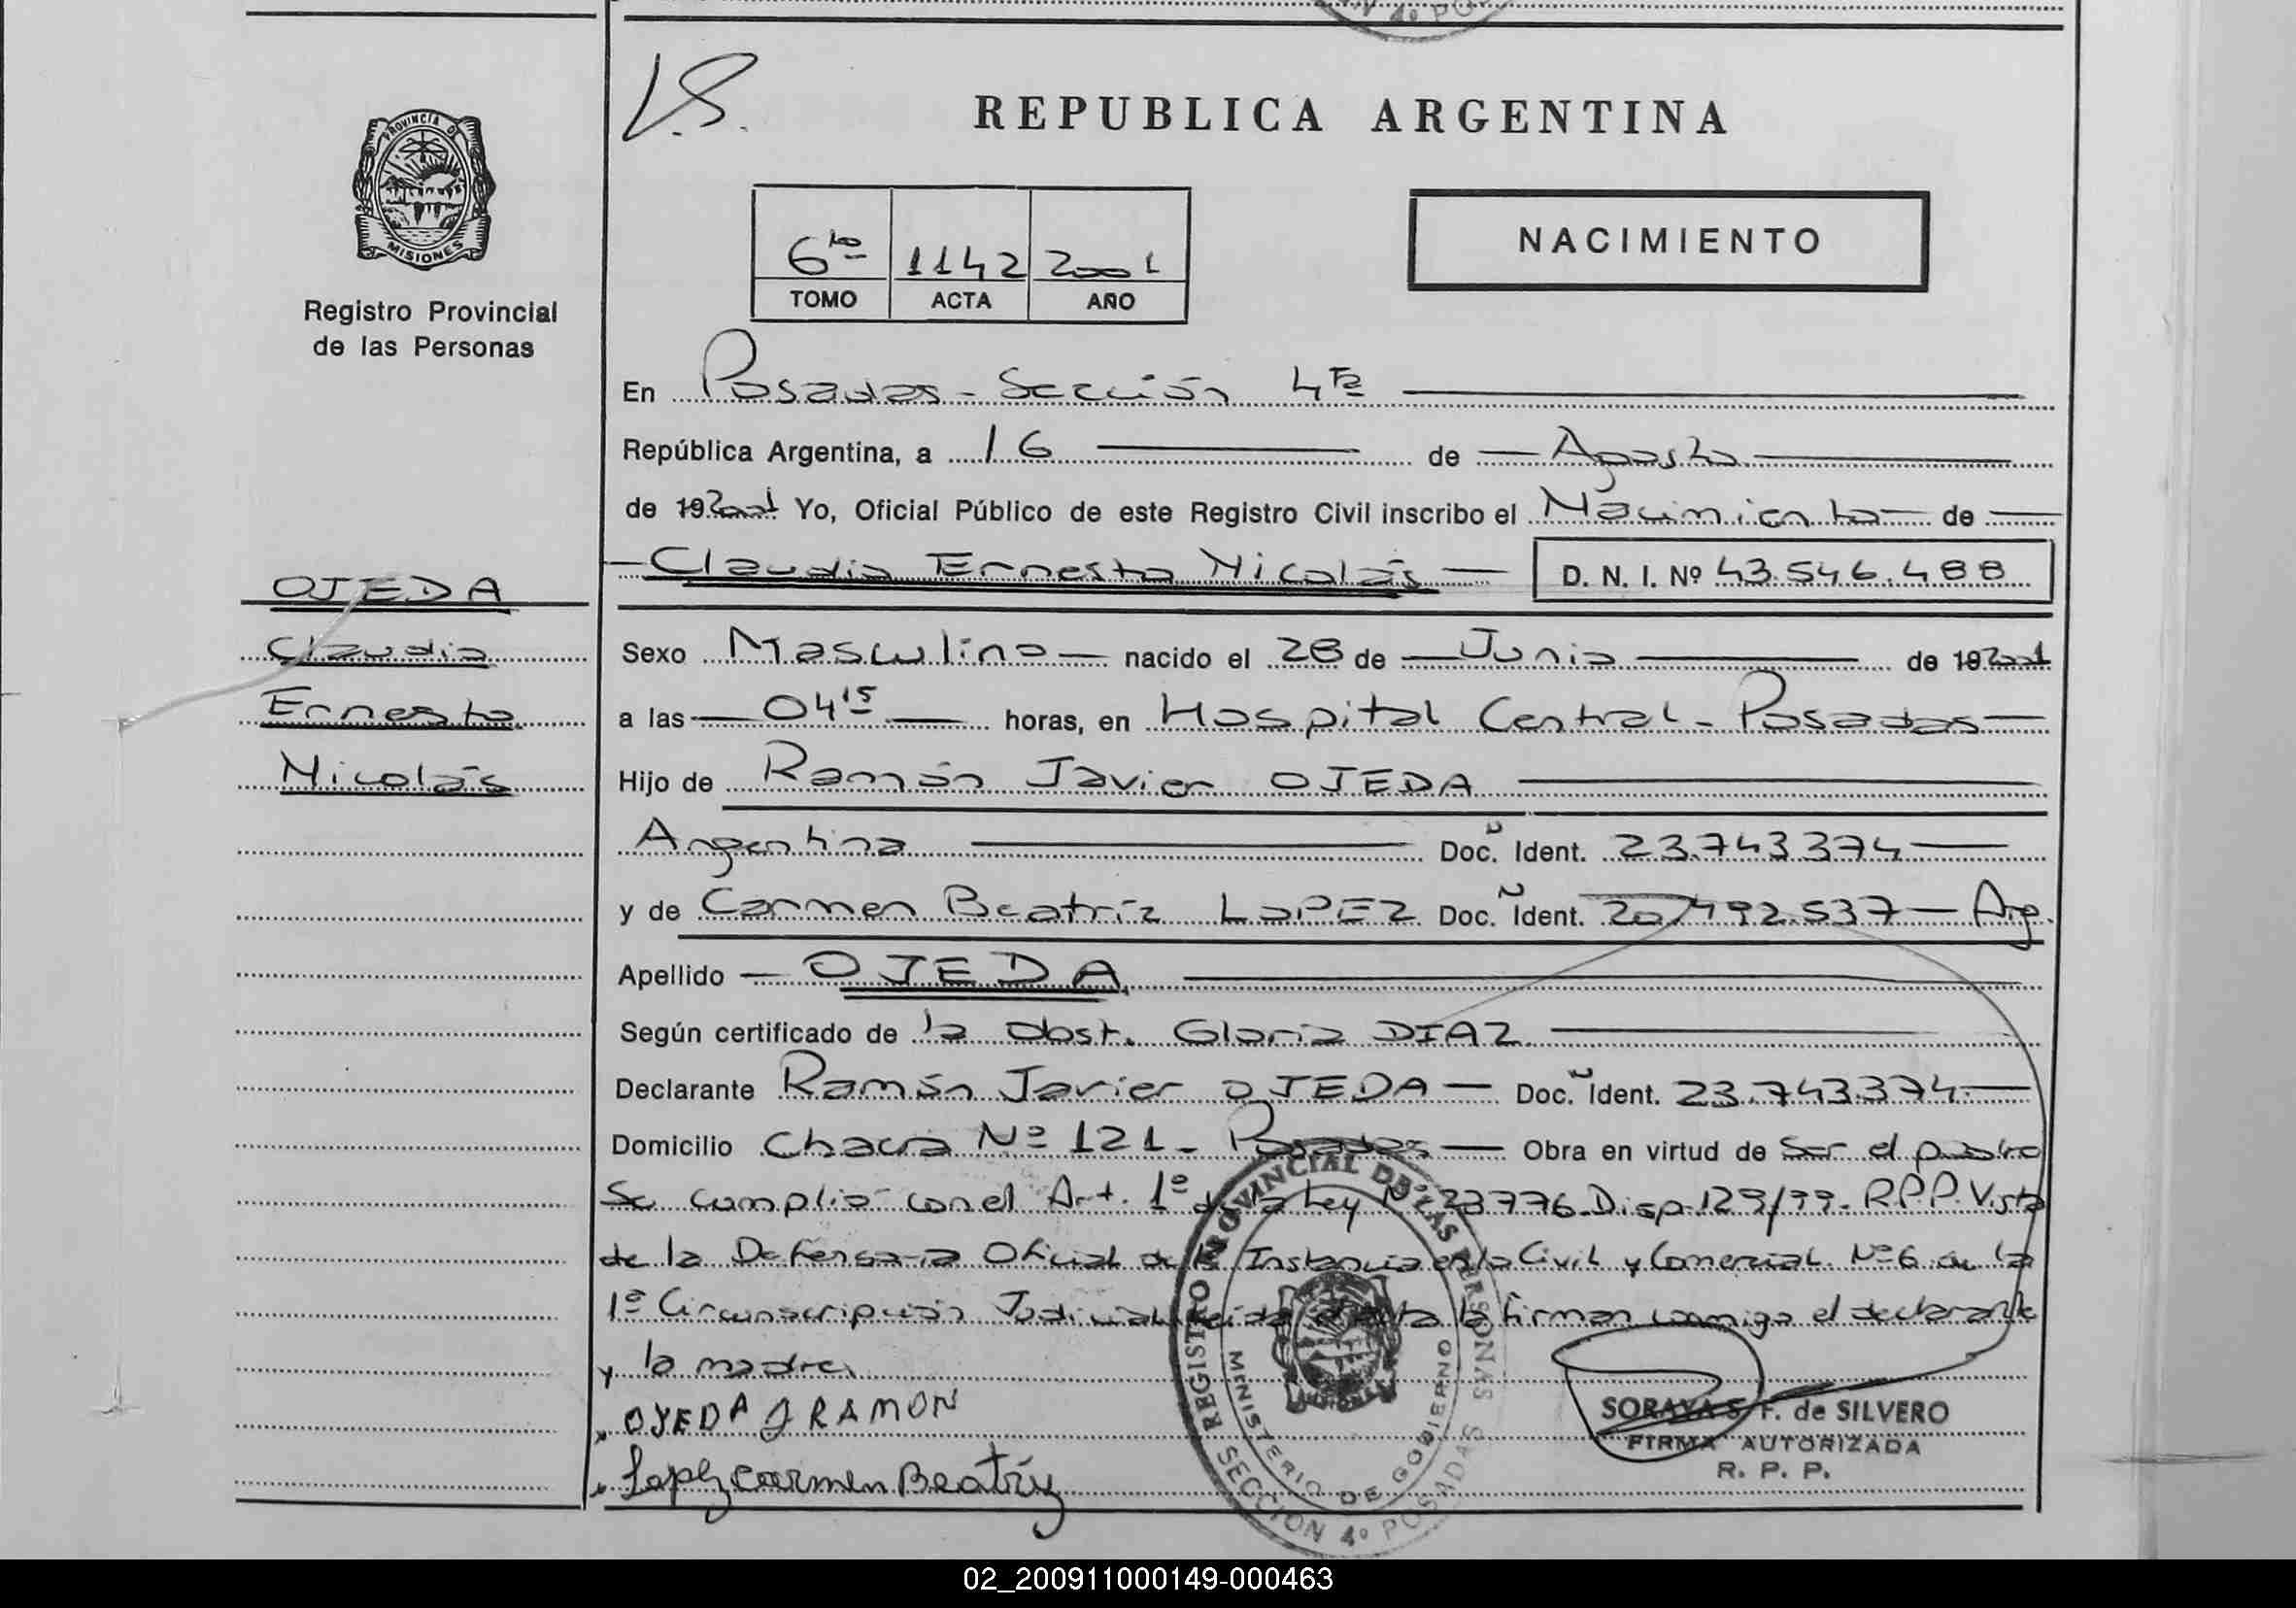 4º PO
V.S.
REPUBLICA ARGENTINA
PROVINCIA DE
MISIONES
Registro Provincial
de las Personas
6to 1142 2001
TOMO ACTA AÑO
NACIMIENTO
En Posadas - Sección 4ta
República Argentina, a 16 de Agosto
de 19 2001 Yo, Oficial Público de este Registro Civil inscribo el Nacimiento de
Claudio Ernesto Nicolás D. N. I. Nº 43.546.488
OJEDA
Claudio
Ernesto
Nicolás
Sexo Masculino nacido el 28 de Junio de 19 2001
a las 04 15 horas, en Hospital Central - Posadas
Hijo de Ramón Javier OJEDA
Argentina Doc. Ident. 23.743.374
y de Carmen Beatríz LOPEZ Doc. Ident. 20.492.537 - Arg.
Apellido OJEDA
Según certificado de la Obst. Gloria DIAZ
Declarante Ramón Javier OJEDA Doc. Ident. 23.743.374
Domicilio Chacra Nº 121 - Posadas Obra en virtud de Ser el padre
Se cumplió con el Art. 1º de la Ley Nº 23776 - Disp. 129/99 - R.P.P. Vista
de la Defensoria Oficial de 1ª Instancia en lo Civil y Comercial Nº 6 de la
1º Circunscripción Judicial leida el acta la firman conmigo el declarante
y la madre
OJEDA J RAMON
Lopez Carmen Beatríz
REGISTRO PROVINCIAL DE LAS PERSONAS
MINISTERIO DE GOBIERNO
SECCION 4º POSADAS
SORAYA S. F. de SILVERO
FIRMA AUTORIZADA
R. P. P.
02_200911000149-000463